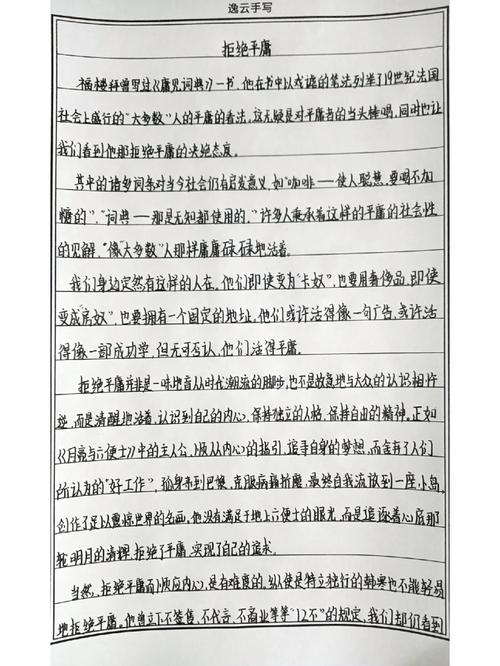 逸云手写
拒绝平庸
福楼拜曾写过《庸见词典》一书，他在书中以戏谑的笔法列举了19世纪法国
社会上盛行的“大多数”人的平庸的看法。这无疑是对平庸者的当头棒喝，同时也让
我们看到他那拒绝平庸的决绝态度。
其中的诸多词条对当今社会仍有启发意义，如“咖啡——使人聪慧，要喝不加
糖的”，“词典——那是无知者使用的，”许多人秉承着这样的平庸的社会性
的见解，“像大多数”人那样庸庸碌碌地活着。
我们身边定然有这样的人在。他们即使变为“卡奴”，也要用奢侈品，即使
变成“房奴”，也要拥有一个固定的地址。他们或许活得像一句广告，或许活
得像一部成功学，但无可否认，他们活得平庸。
拒绝平庸并非是一味地盲从时代潮流的脚步，也不是故意地与大众的认识相
逆，而是清醒地活着，认识到自己的内心，保持独立的人格，保持自由的精神。正如
《月亮与六便士》中的主人公，顺从内心的指引，追寻自身的梦想，而舍弃了人们
所认为的“好工作”，孤身来到巴黎，克服病痛折磨，最终自我流放到一座小岛，
创作了足以震惊世界的名画。他没有满足于地上六便士的眼光，而是追逐着心底那
轮明月的清辉，拒绝了平庸，实现了自己的追求。
当然，拒绝平庸而顺应内心，是有难度的。纵使是特立独行的韩寒也不能轻易
地拒绝平庸。他曾立下不签售，不代言，不商业等等“12不”的规定，我们却仍看到